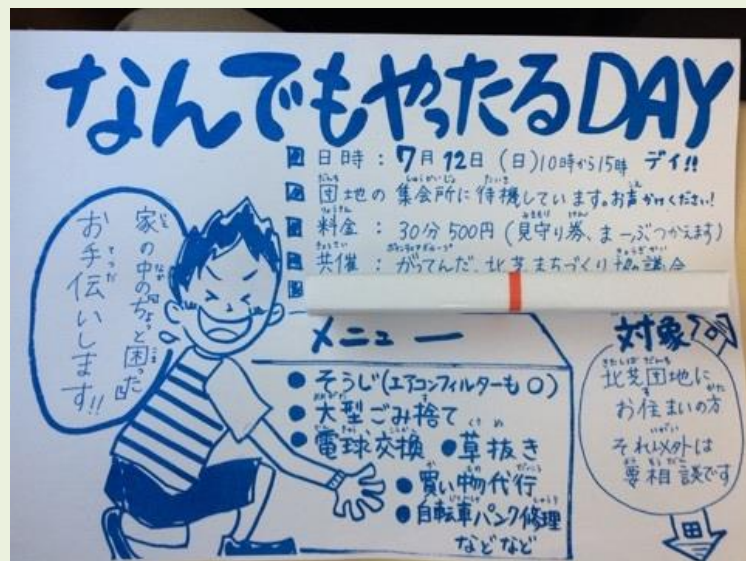 なんでもやったるDAY
日時：7月12日（日）10時から15時 デイ!!
団地の集会所に待機しています。お声かけください!
料金：30分500円（見守り券、まーぶつかえます）
共催：がってんだ、北芝まちづくり協議会
家の中のちょっと困った
お手伝いします!!
メニュー
●そうじ(エアコンフィルターも○)
●大型ごみ捨て
●電球交換 ●草抜き
●買い物代行
●自転車パンク修理
などなど
対象
北芝団地に
お住まいの方
それ以外は
要相談です